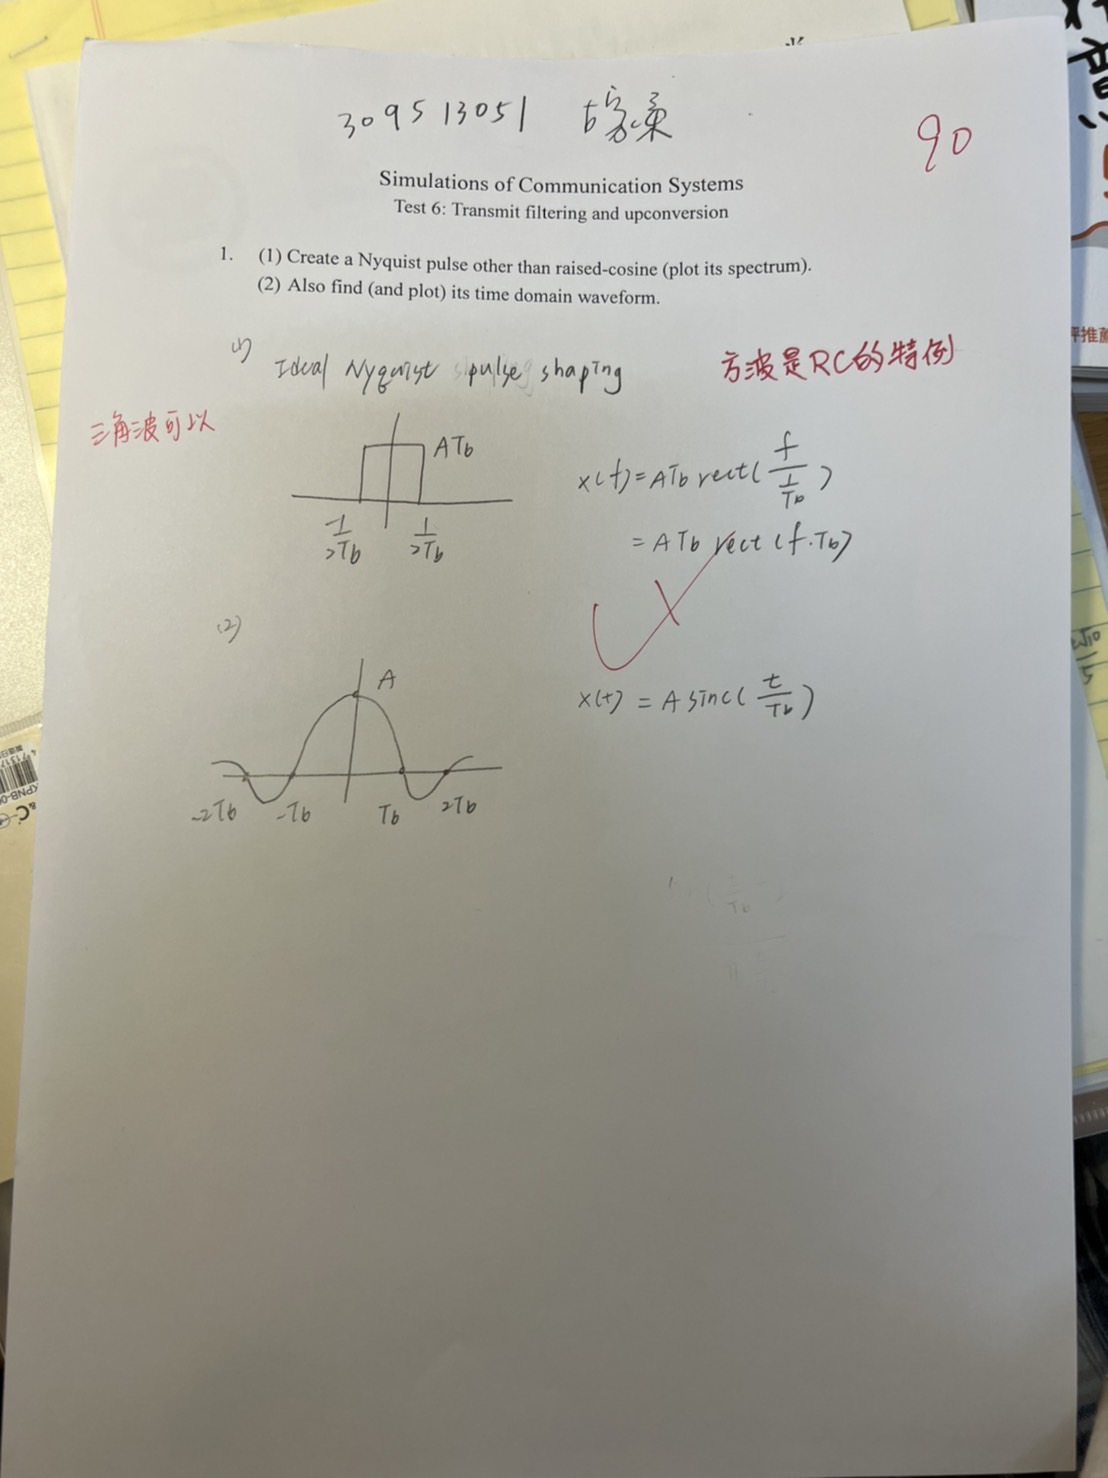 309513051
90
Simulations of Communication Systems
Test 6: Transmit filtering and upconversion
1. (1) Create a Nyquist pulse other than raised-cosine (plot its spectrum).
(2) Also find (and plot) its time domain waveform.
(1) Ideal Nyquist pulse shaping
方波是RC的特例
三角波可以
ATb
-1/2Tb 1/2Tb
x(f) = ATb rect(f/(1/Tb))
= ATb rect(f·Tb)
(2)
A
-2Tb -Tb Tb 2Tb
x(t) = A sinc(t/Tb)
評推薦